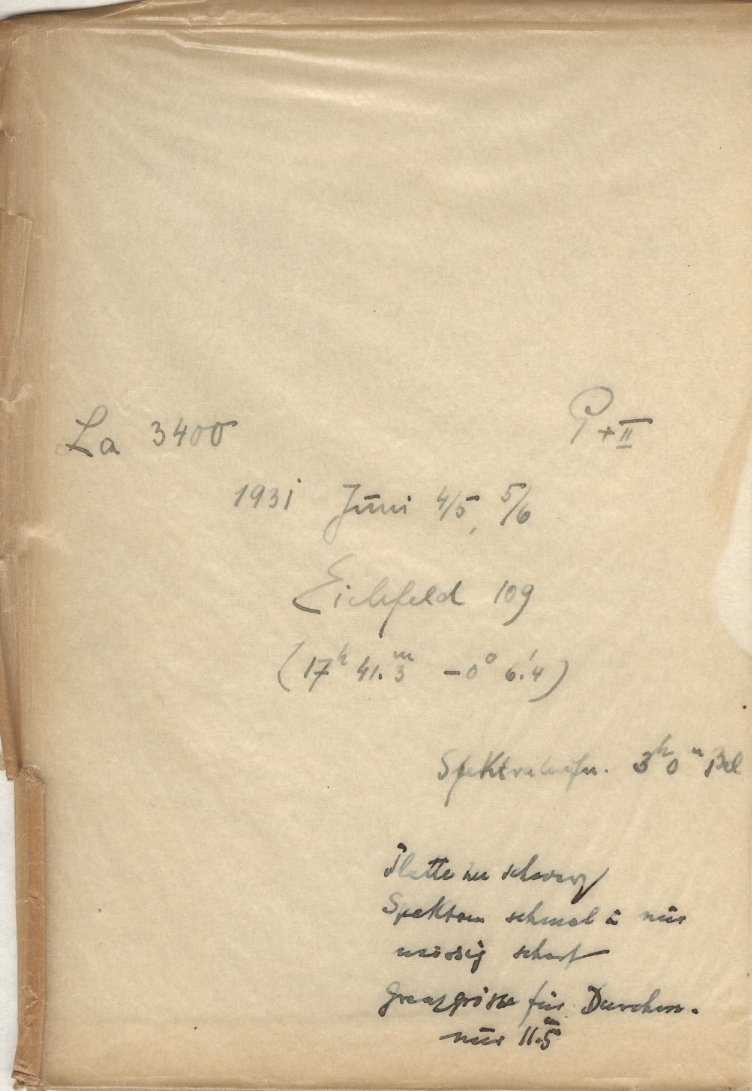 La 3400 P + II
1931 Juni 4/5, 5/6
Eichfeld 109
(17h 41.3m -0° 6.'4)
Spektralaufn. 3h 0m Bel
Platte zu schwarz
Spektren schmal u nur
mässig scharf
Grenzgrösse für Durchm.
nur 11.5m